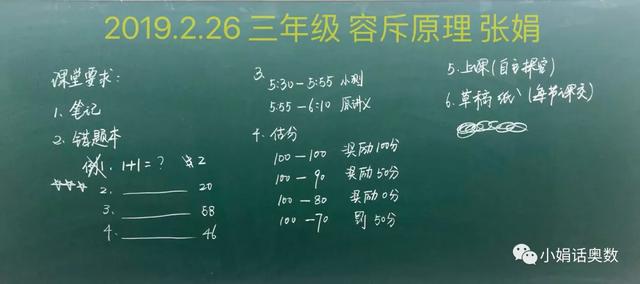 2019.2.26 三年级 容斥原理 张娟
课堂要求:
1. 笔记
2. 错题本
例1. 1+1=? 2
2. 20
3. 58
4. 46
3.
5:30-5:55 小测
5:55-6:10 原讲义
4. 估分
100-100 奖励100分
100-90 奖励50分
100-80 奖励0分
100-70 罚50分
5. 上课(自
6. 草稿纸(每节课交)
小娟话奥数